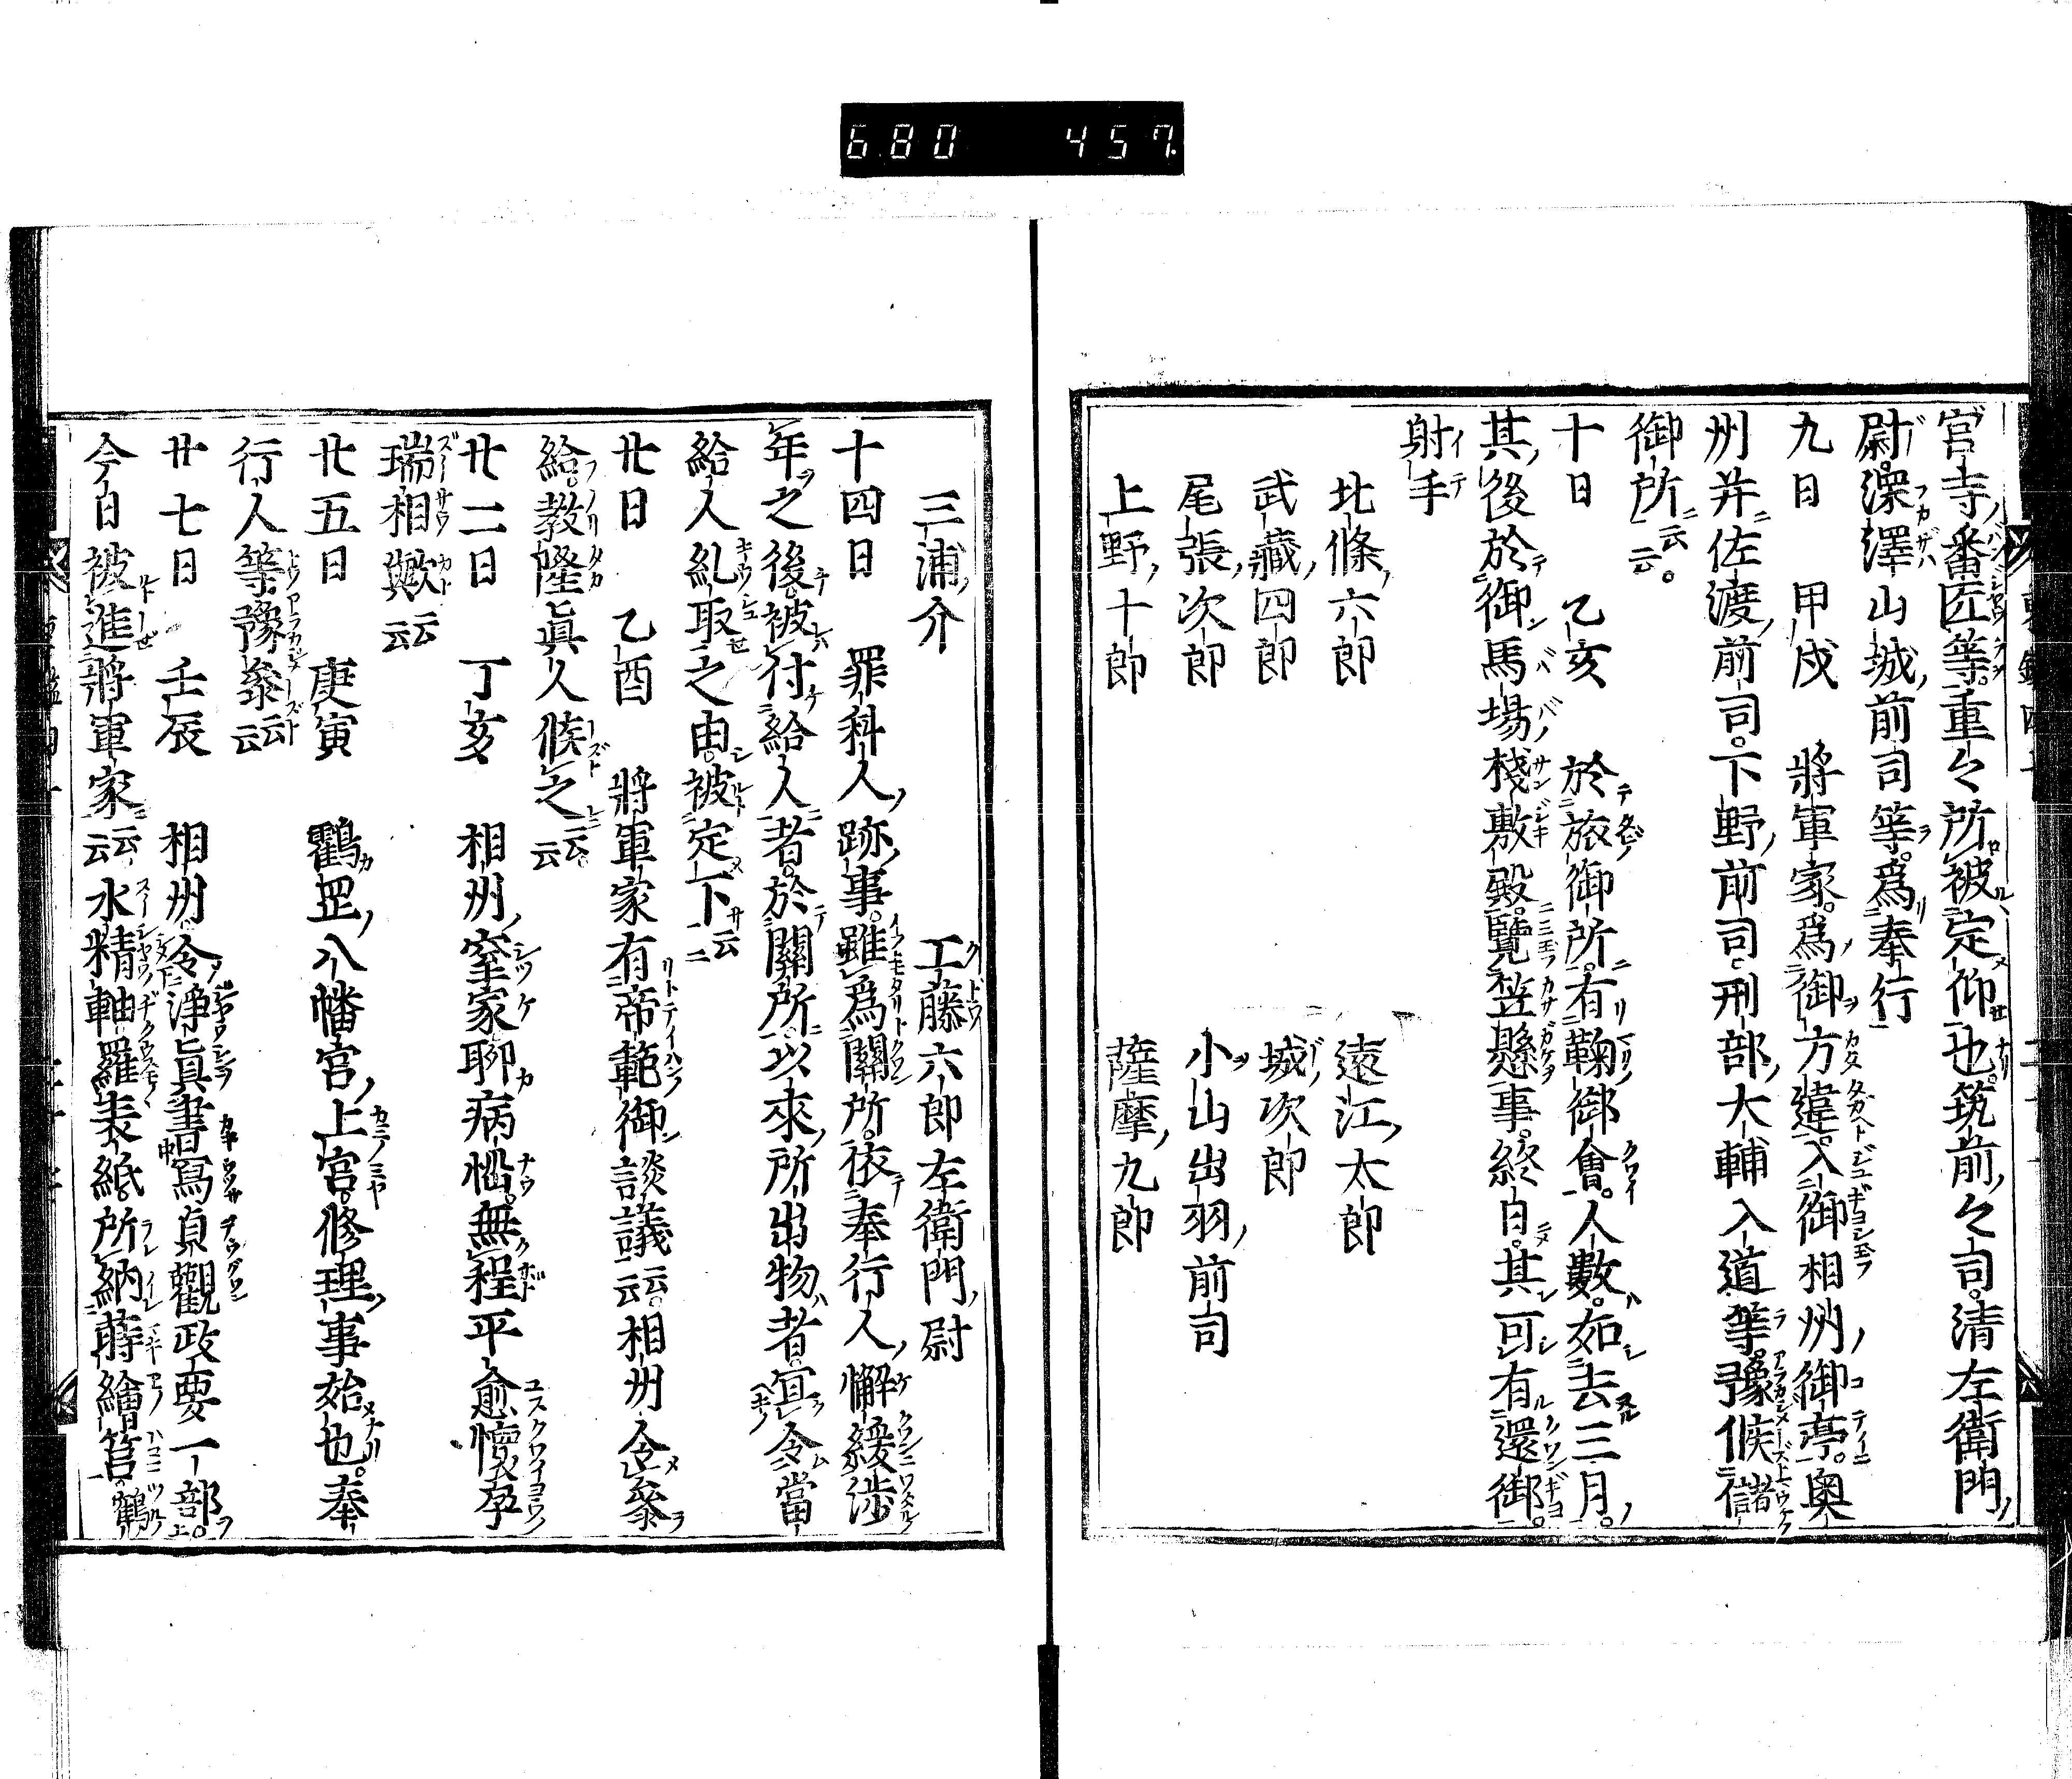 680 457
宮寺番匠等。重々所被定仰也。筑前々司。清左衛門
尉。深澤山城前司等。爲奉行
九日 甲戌 將軍家。爲御方違。入御相州御亭。奥
州并佐渡前司。下野前司刑部大輔入道等。豫候儲
御所云云。
十日 乙亥 於旅御所。有鞠御會。人數。如去三月。
其後於御馬場棧敷殿。覽笠懸事。終日。其可有還御。
射手
北條六郎 遠江太郎
武藏四郎 城次郎
尾張次郎 小山出羽前司
上野十郎 薩摩九郎
三浦介 工藤六郎左衛門尉
十四日 罪科人跡事。雖爲闕所。依奉行人懈緩渉
年之後。被付給人者。於闕所以來所出物者。宜令當
給人糺取之由。被定下云云
廿日 乙酉 將軍家有帝範御談議云云。相州令參
給。教隆眞人候之云云。
廿二日 丁亥 相州室家聊病惱。無程平愈懷孕
瑞相歟云云
廿五日 庚寅 鶴岡八幡宮上宮修理事始也。奉
行人等豫參云云
廿七日 壬辰 相州令淨眞書寫貞觀政要一部。
今日被進將軍家云云水精軸羅表紙。所納蒔繪筥。鶴